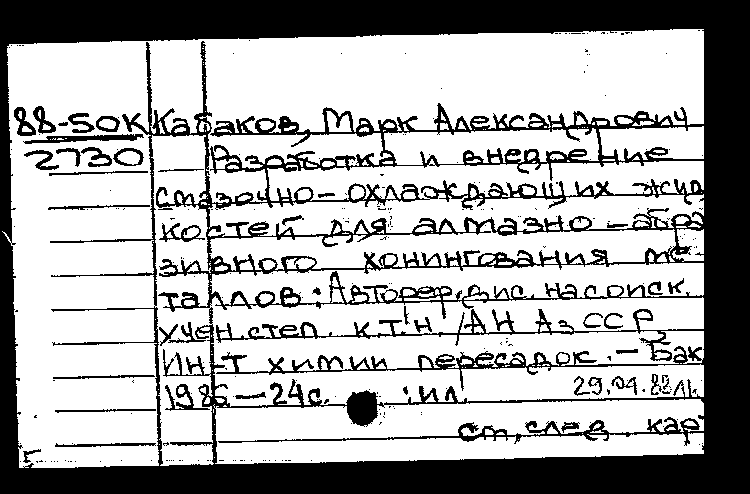 88-50К Кабаков, Марк Александрович
2730 Разработка и внедрение
смазочно-охлаждающих жид
костей для алмазно-абра
зивного хонингования ме-
таллов: Автореф. дис. на соиск.
учен. степ. к.т.н. /АН АзССР,
Ин-т химии пересадок. - Бак
1986 - 24с. : ил. 29.04.88
ст, след. кар
5